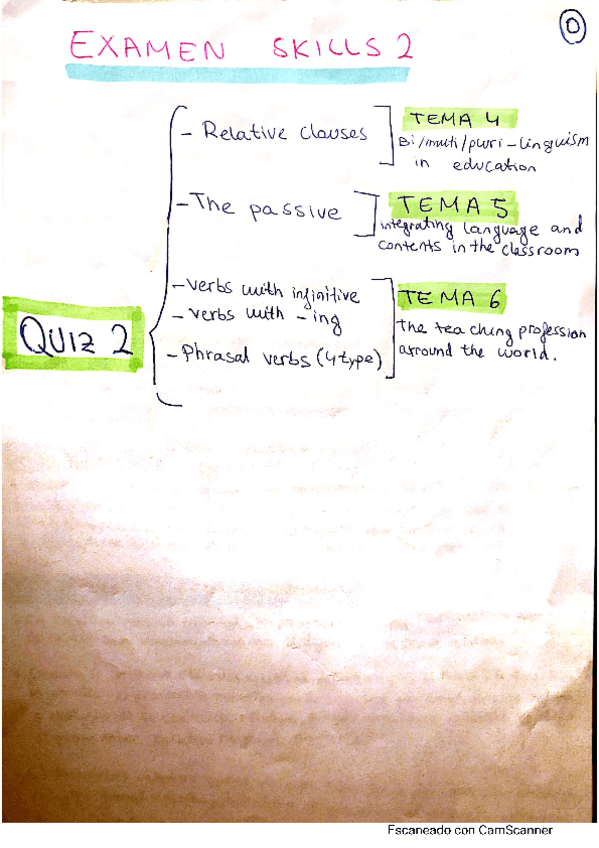 0
EXAMEN SKILLS 2
- Relative clauses
TEMA 4
Bi/multi/pluri-linguism
in education
- The passive
TEMA 5
integrating language and
contents in the classroom
- verbs with infinitive
- verbs with -ing
- Phrasal verbs (4 type)
TEMA 6
the teaching profession
arround the world.
QUIZ 2
Escaneado con CamScanner